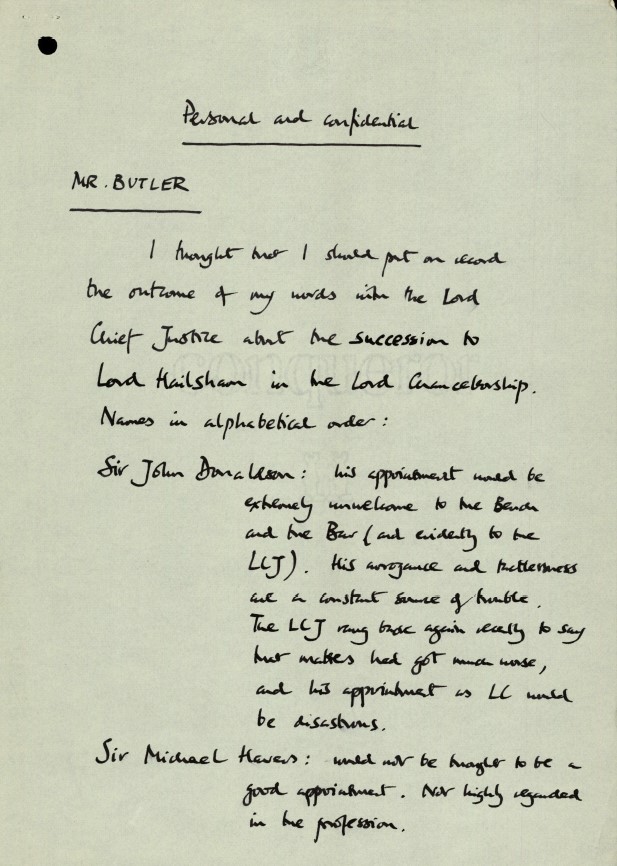 Personal and confidential
MR. BUTLER
I thought that I should put on record
the outcome of my words with the Lord
Chief Justice about the succession to
Lord Hailsham in the Lord Chancellorship.
Names in alphabetical order:
Sir John Donaldson: his appointment would be
extremely unwelcome to the Bench
and the Bar (and evidently to the
LCJ). His arrogance and tactlessness
are a constant source of trouble.
The LCJ rang back again recently to say
that matters had got much worse,
and his appointment as LC would
be disastrous.
Sir Michael Havers: would not be thought to be a
good appointment. Not highly regarded
in the profession.